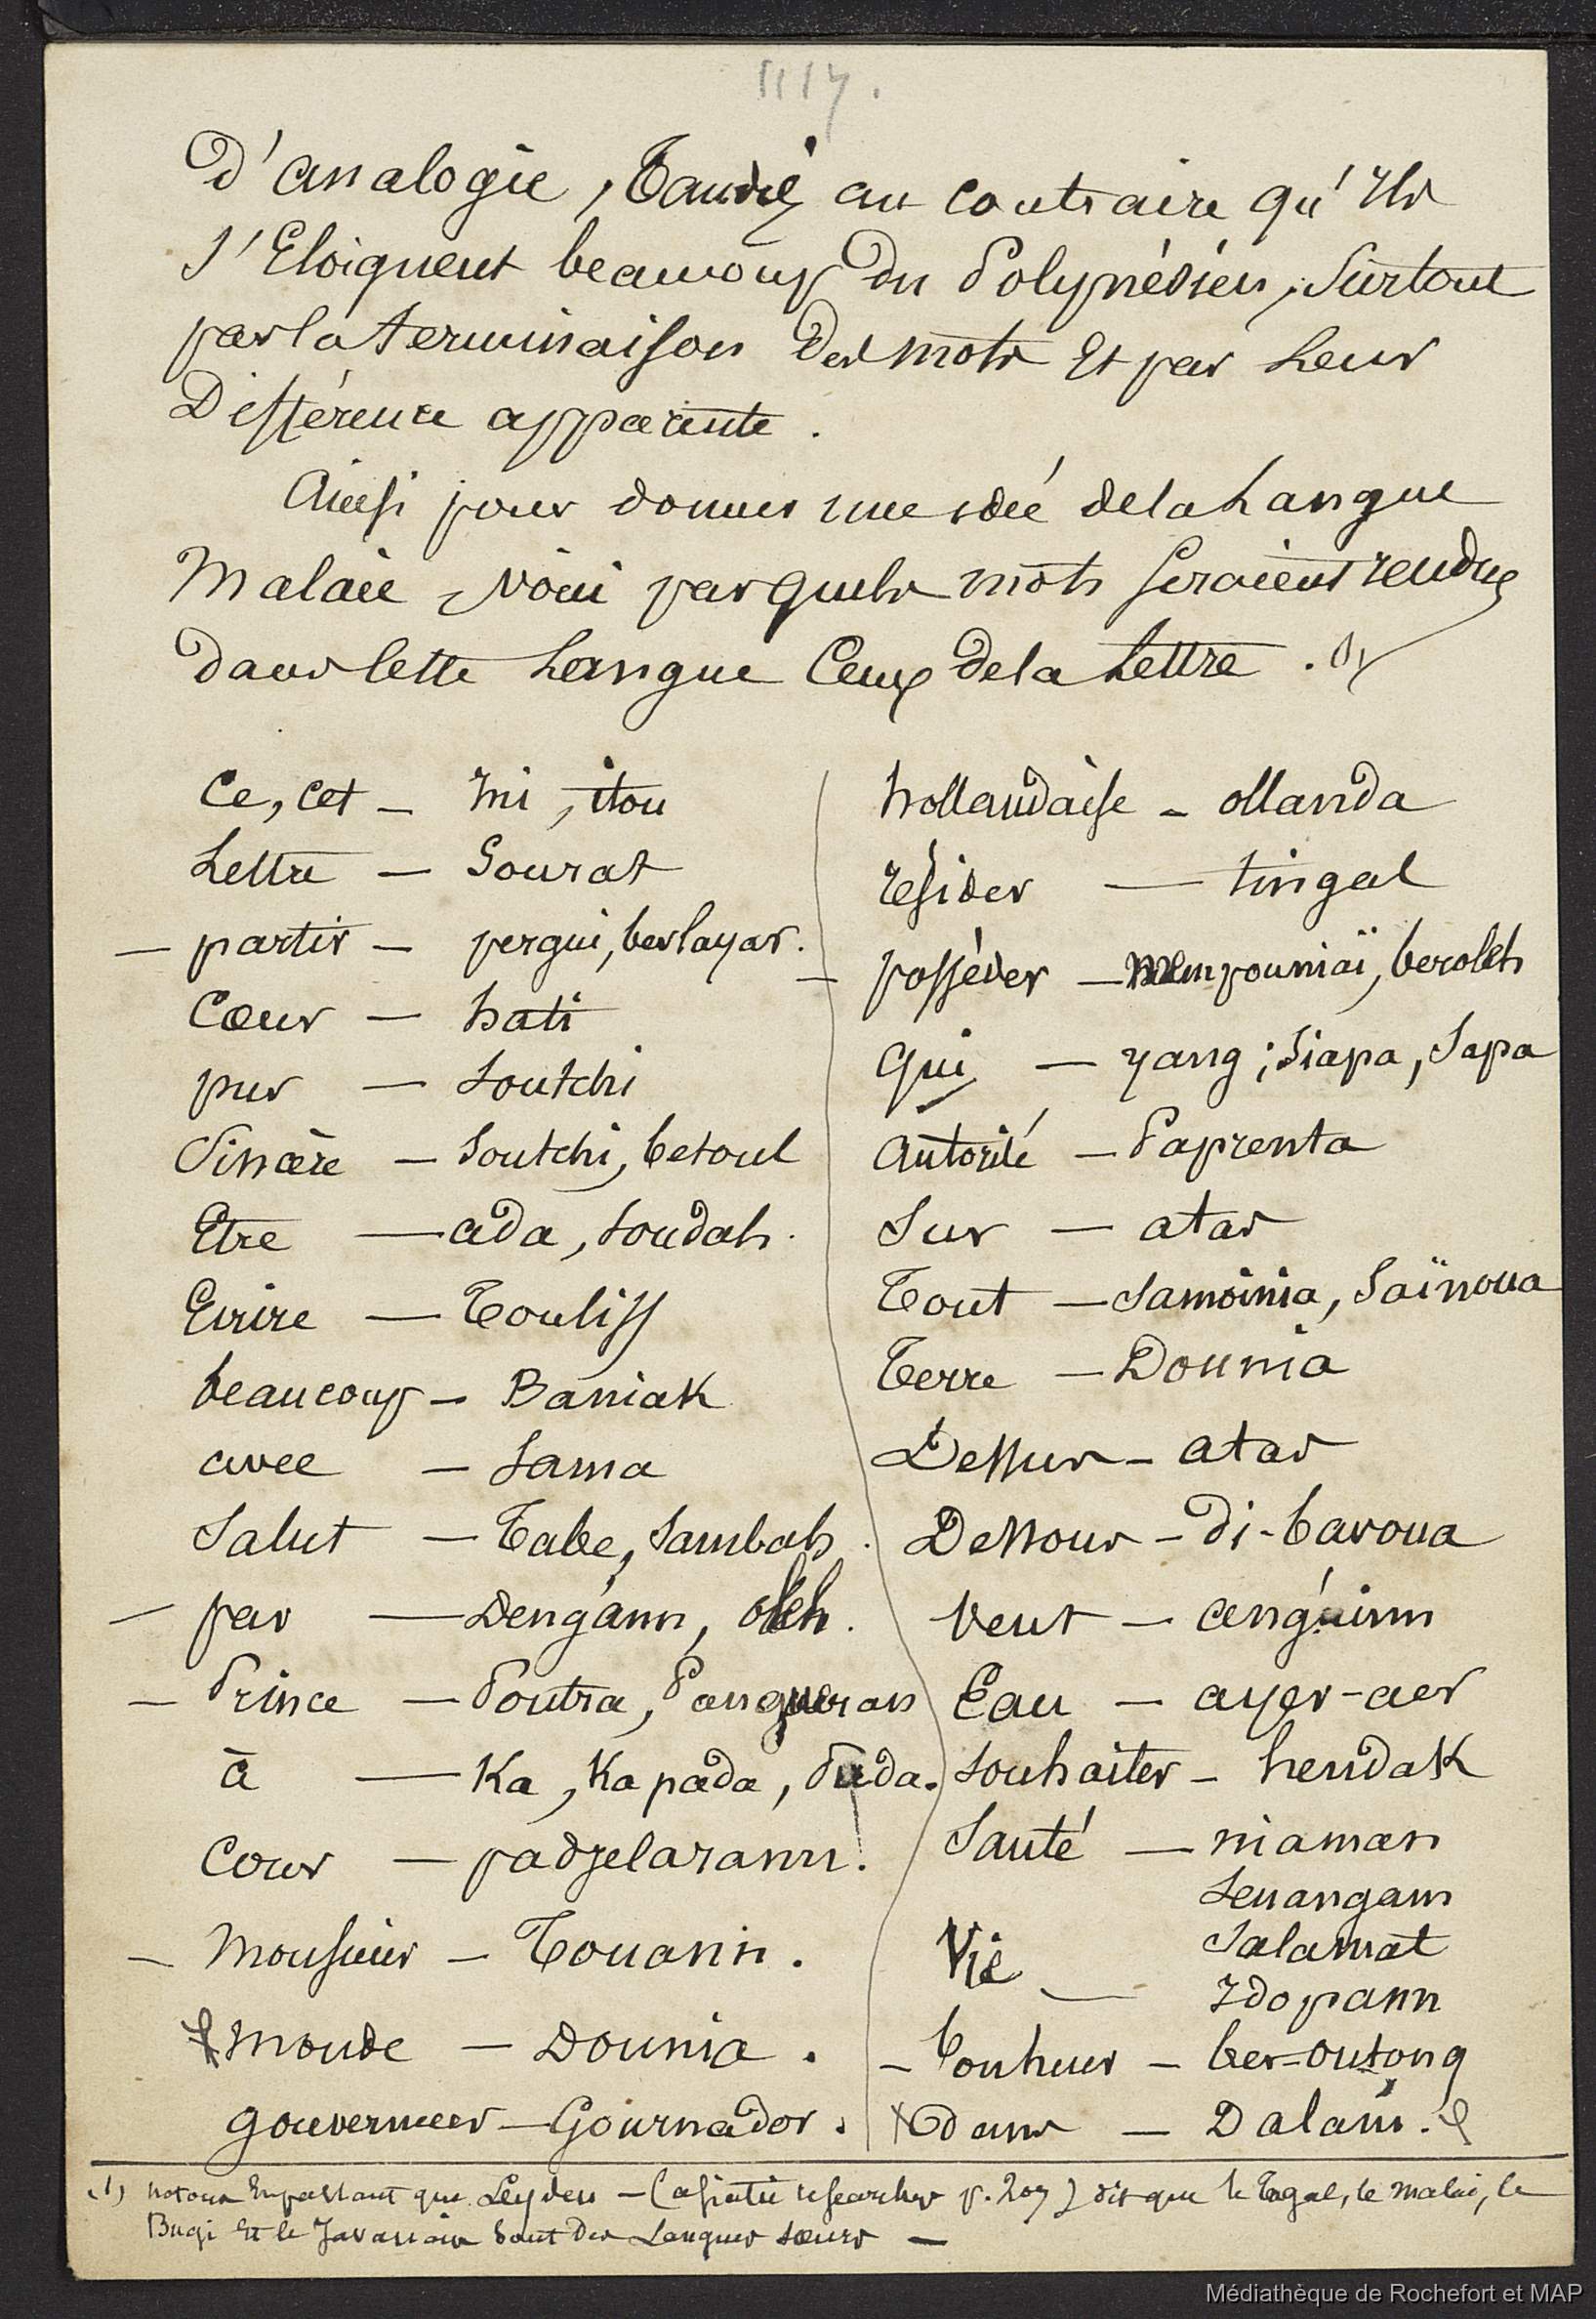 d'analogie, tandis au contraire qu'ils
s'Eloignent beaucoup du Polynésien, surtout
par la terminaison des mots Et par leur
Différence apparente.
Ainsi pour donner une idée de la Langue
Malaie, voici par quels mots seraient rendus
dans cette Langue Ceux de la Lettre. (1)
Ce, cet — Ini, itou
Lettre — Sourat
— partir — pergui, berlayar.
Cœur — hati
pur — soutchi
Sincère — Soutchi, betoul
Etre — ada, soudah.
Ecrire — Touliss
beaucoup — Baniak
avec — Sama
Salut — Tabe, Sambah.
— par — Dengánn, oleh.
— Prince — Poutra, Pangueran
à — Ka, Ka pada, Pada.
Cour — padjelarann.
— Monsieur — Touann.
Monde — Dounia.
gouverneur — Gournador.
hollandaise — ollanda
résider — tingal
— posséder — mempouniaï, beroleh
Qui — yang; Siapa, Sapa
Autorité — Paprenta
Sur — atas
Tout — Samoinia, Saïnoua
Terre — Dounia
Dessus — atas
Dessous — di-bavoua
Vent — anguinn
Eau — ayer-aer
souhaiter — hendak
Santé — niaman
Senangam
Salamat
Vie — Idopann
— bonheur — ber=outong
dans — Dalam.
(1) notons En passant que Leyden — (asiatic researches p. 207) dit que le Tagal, le Malai, le
Bugi Et le Javanais sont des Langues sœurs —
Médiathèque de Rochefort et MAP